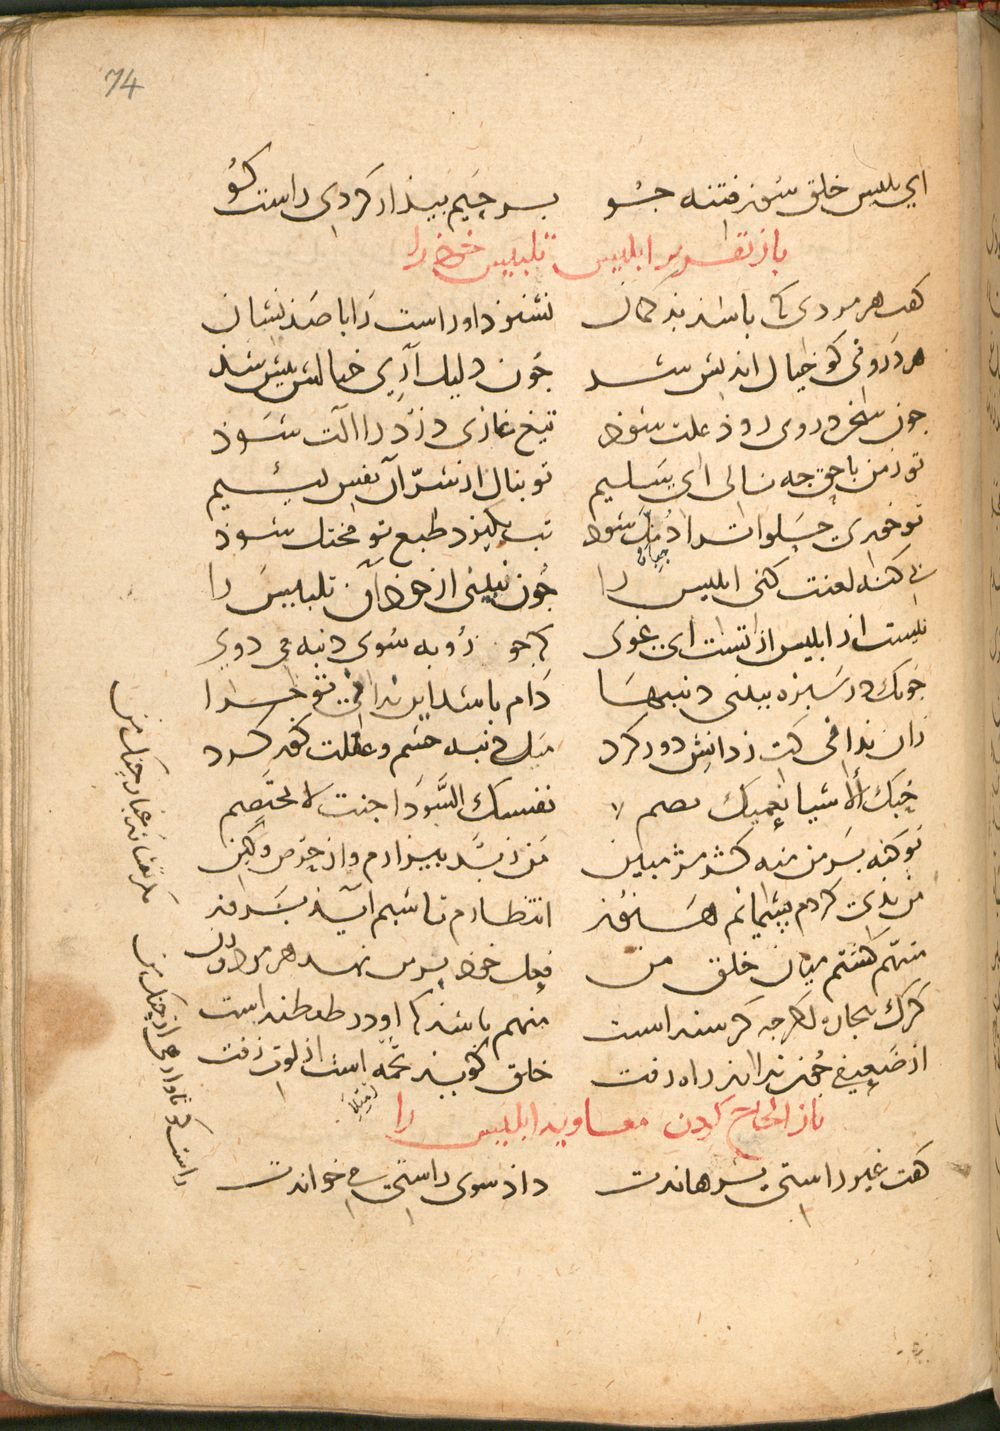 74
ای بلیس خلق سوز فتنه جو بر چیم بیذار کردی راست کو
باز تقریر ابلیس تلبیس خوذ را
کفت هر مردی کا باشذ بذ کمان نشنوذ او راست را با صذ نشان
هر درونی کو خیال اندیش شد جون دلیل آری خیالش بیش شذ
جون سخن در وی روذ علت شوذ تیغ غازی دزد را آلت شوذ
تو ز من با حق جه نالی ای سلیم تو بنال از شر آن نفس لئیم
تو خوری حلوا ترا دنبل شوذ تب بکیرذ طبع تو مختل شوذ
بی کنه لعنت کنی ابلیس را جون نبینی از خوذ آن تلبیس را
نیست از ابلیس از تست ای غوی که جو روبه سوی دنبه می دوی
جونک در سبزه ببینی دنبها دام باشد این ندانی تو جرا
زان ندانی کت ز دانش دور کرد میل دنبه جشم و عقلت کور کرد
حبک الاشیا یعمیک یصم نفسک السودا جنت لا تختصم
تو کنه بر من منه کژ مژ مبین من ز بد بیزارم و از حرص و کین
من بذی کردم پشیمانم هنوز انتظارم تا شبم آیذ بروز
متهم کشتم میان خلق من فعل خوذ بر من نهد هر مرد و زن
کرک بیجاره اکرجه کرسنه است متهم باشذ کا او در طنطنه است
از ضعیفی جون نداند راه رفت خلق کویند تخمه است از لوت زفت
باز الحاح کردن معاویه ابلیس را
کفت غیر راستی نرهاندت داد سوی راستی می خواندت
راست کو تا وارهی از جنک من
مکر ننشاند غبار جنک من